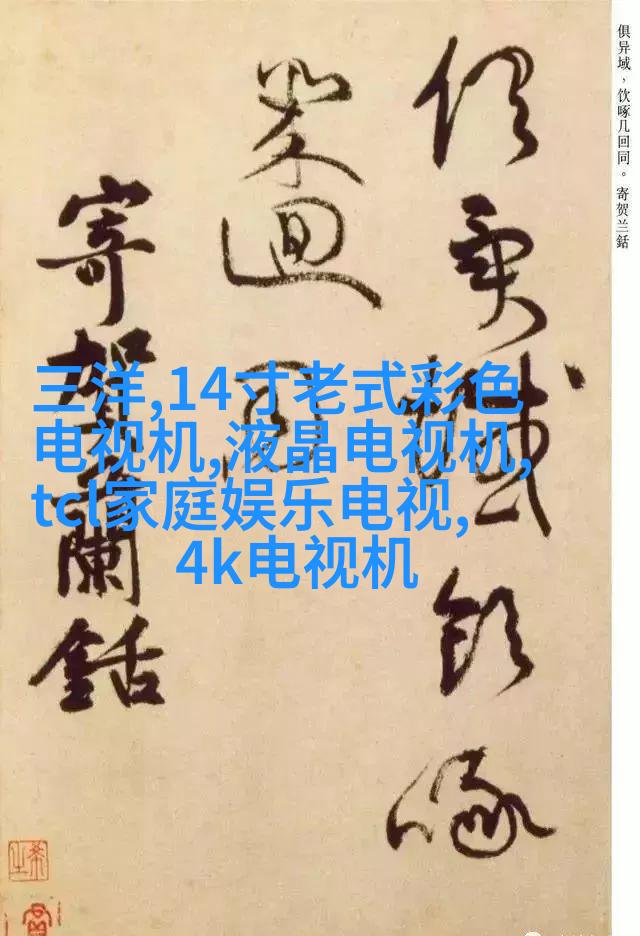 俱异域，饮啄几回同。寄贺兰铦
俱異域飲啄
幾迴同
寄賀蘭銛
三洋,14寸老式彩色
电视机,液晶电视机,
tcl家庭娱乐电视,
4k电视机